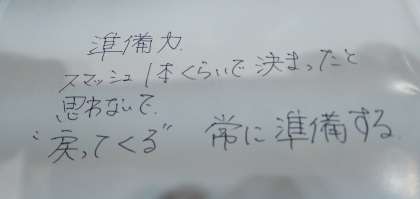 準備力
スマッシュ1本くらいで決まったと
思わないで、
"戻ってくる" 常に準備する